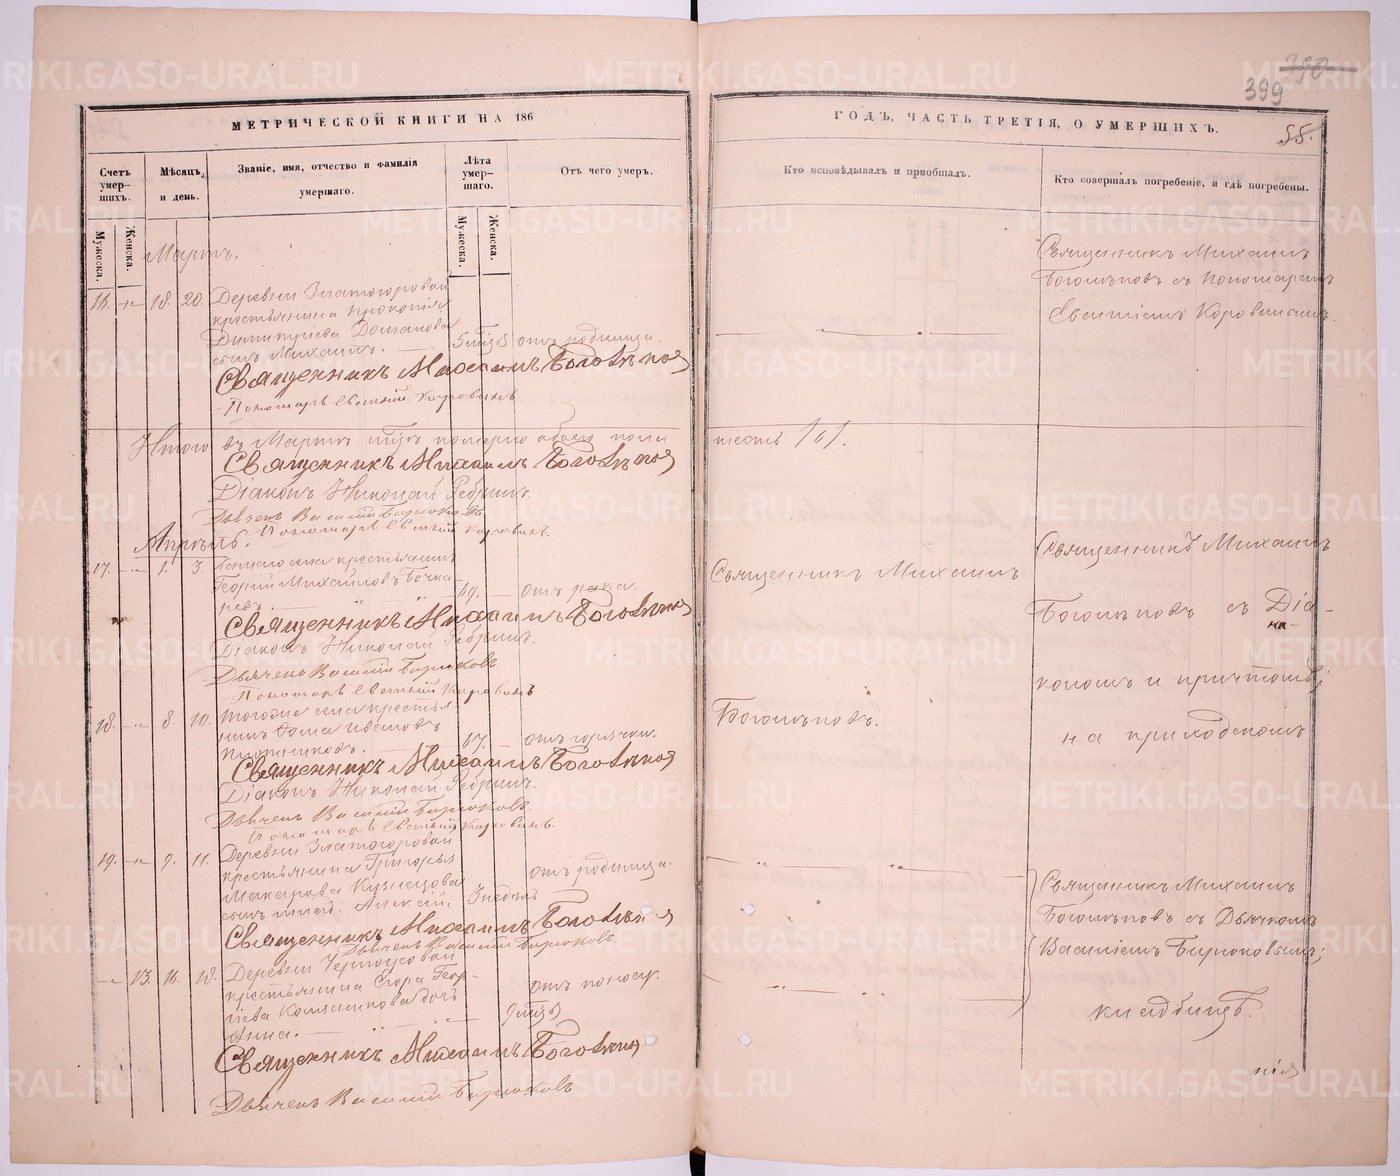 399
МЕТРИЧЕСКОЙ КНИГИ НА 186
ГОДЪ, ЧАСТЬ ТРЕТІЯ, О УМЕРШИХЪ.
55.
Счетъ умер-
шихъ.
Мужеска.
Женска.
Мѣсяцъ
и день.
Званіе, имя, отчество и фамилія
умершаго.
Лѣта
умер-
шаго.
Мужеска.
Женска.
Отъ чего умеръ.
Кто исповѣдывалъ и пріобщалъ.
Кто совершалъ погребеніе, и гдѣ погребены.
Мартъ.
16. 18. 20. Деревни Златогоровой
крестьянина Прокопія
Димитріева Долганова
сынъ Михаилъ. отъ родимца.
Священникъ Михаилъ Боголѣпов
Пономарь Евѳимій Коровинъ
Священникъ Михаилъ
Боголѣповъ съ Пономаремъ
Евѳиміемъ Коровинымъ.
Итого въ Мартѣ мцѣ померло обоего пола
шесть /6/.
Священникъ Михаилъ Боголѣпов
Діаконъ Николай
Дьячекъ Василій Бирюковъ
Пономарь Евѳимій Коровинъ.
Апрѣль.
17. 1. 3. крестьянинъ
Георгій Михайловъ Бочка-
ревъ. 69. отъ рака
Священникъ Михаилъ Боголѣпов
Діаконъ Николай
Дьячекъ Василій Бирюковъ
Пономарь Евѳимій Коровинъ
Священникъ Михаилъ
Боголѣповъ.
Священникъ Михаилъ
Боголѣповъ съ Діа-
кономъ и причтомъ
на приходскомъ
18. 8. 10. Тогоже села крестья-
нинъ Ѳома Ивановъ
Плотниковъ. 67. отъ горячки.
Священникъ Михаилъ Боголѣпов
Діаконъ Николай
Дьячекъ Василій Бирюковъ.
Пономарь Евѳимій Коровинъ.
19. 9. 11. Деревни Златогоровой
крестьянина Григорья
Макарова Кузнецова
сынъ Алексій. 3 недѣль отъ родимца.
Священникъ Михаилъ Боголѣпов
Дьячекъ Василій Бирюковъ
Священникъ Михаилъ
Боголѣповъ съ Дьячкомъ
Василіемъ Бирюковымъ;
кладбищѣ.
13. 16. 18. Деревни Черноусовой
крестьянина Егора Геор-
гіева дочь
Анна. отъ поносу.
Священникъ Михаилъ Боголѣпов
Дьячекъ Василій Бирюковъ
METRIKI.GASO-URAL.RU